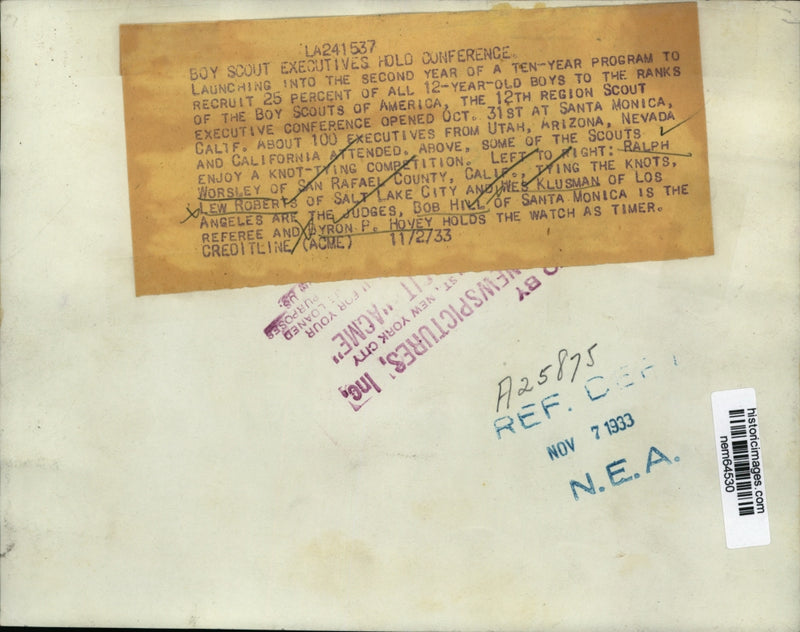 LA241537
BOY SCOUT EXECUTIVES HOLD CONFERENCE.
LAUNCHING INTO THE SECOND YEAR OF A TEN-YEAR PROGRAM TO
RECRUIT 25 PERCENT OF ALL 12-YEAR-OLD BOYS TO THE RANKS
OF THE BOY SCOUTS OF AMERICA, THE 12TH REGION SCOUT
EXECUTIVE CONFERENCE OPENED OCT. 31ST AT SANTA MONICA,
CALIF. ABOUT 100 EXECUTIVES FROM UTAH, ARIZONA, NEVADA
AND CALIFORNIA ATTENDED. ABOVE, SOME OF THE SCOUTS
ENJOY A KNOT-TYING COMPETITION. LEFT TO RIGHT: RALPH
WORSLEY OF SAN RAFAEL COUNTY, CALIF., TYING THE KNOTS,
LEW ROBERTS OF SALT LAKE CITY AND WES KLUSMAN OF LOS
ANGELES ARE THE JUDGES, BOB HILL OF SANTA MONICA IS THE
REFEREE AND BYRON P. HOVEY HOLDS THE WATCH AS TIMER.
CREDITLINE (ACME) 11/2/33
BY
NEWSPICTURES, Inc.
ST. NEW YORK CITY
"ACME"
FOR YOUR
LOANED
PURPOSES
IN US.
A25875
REF. DEPT
NOV 7 1933
N.E.A.
historicimages.com
nem64530